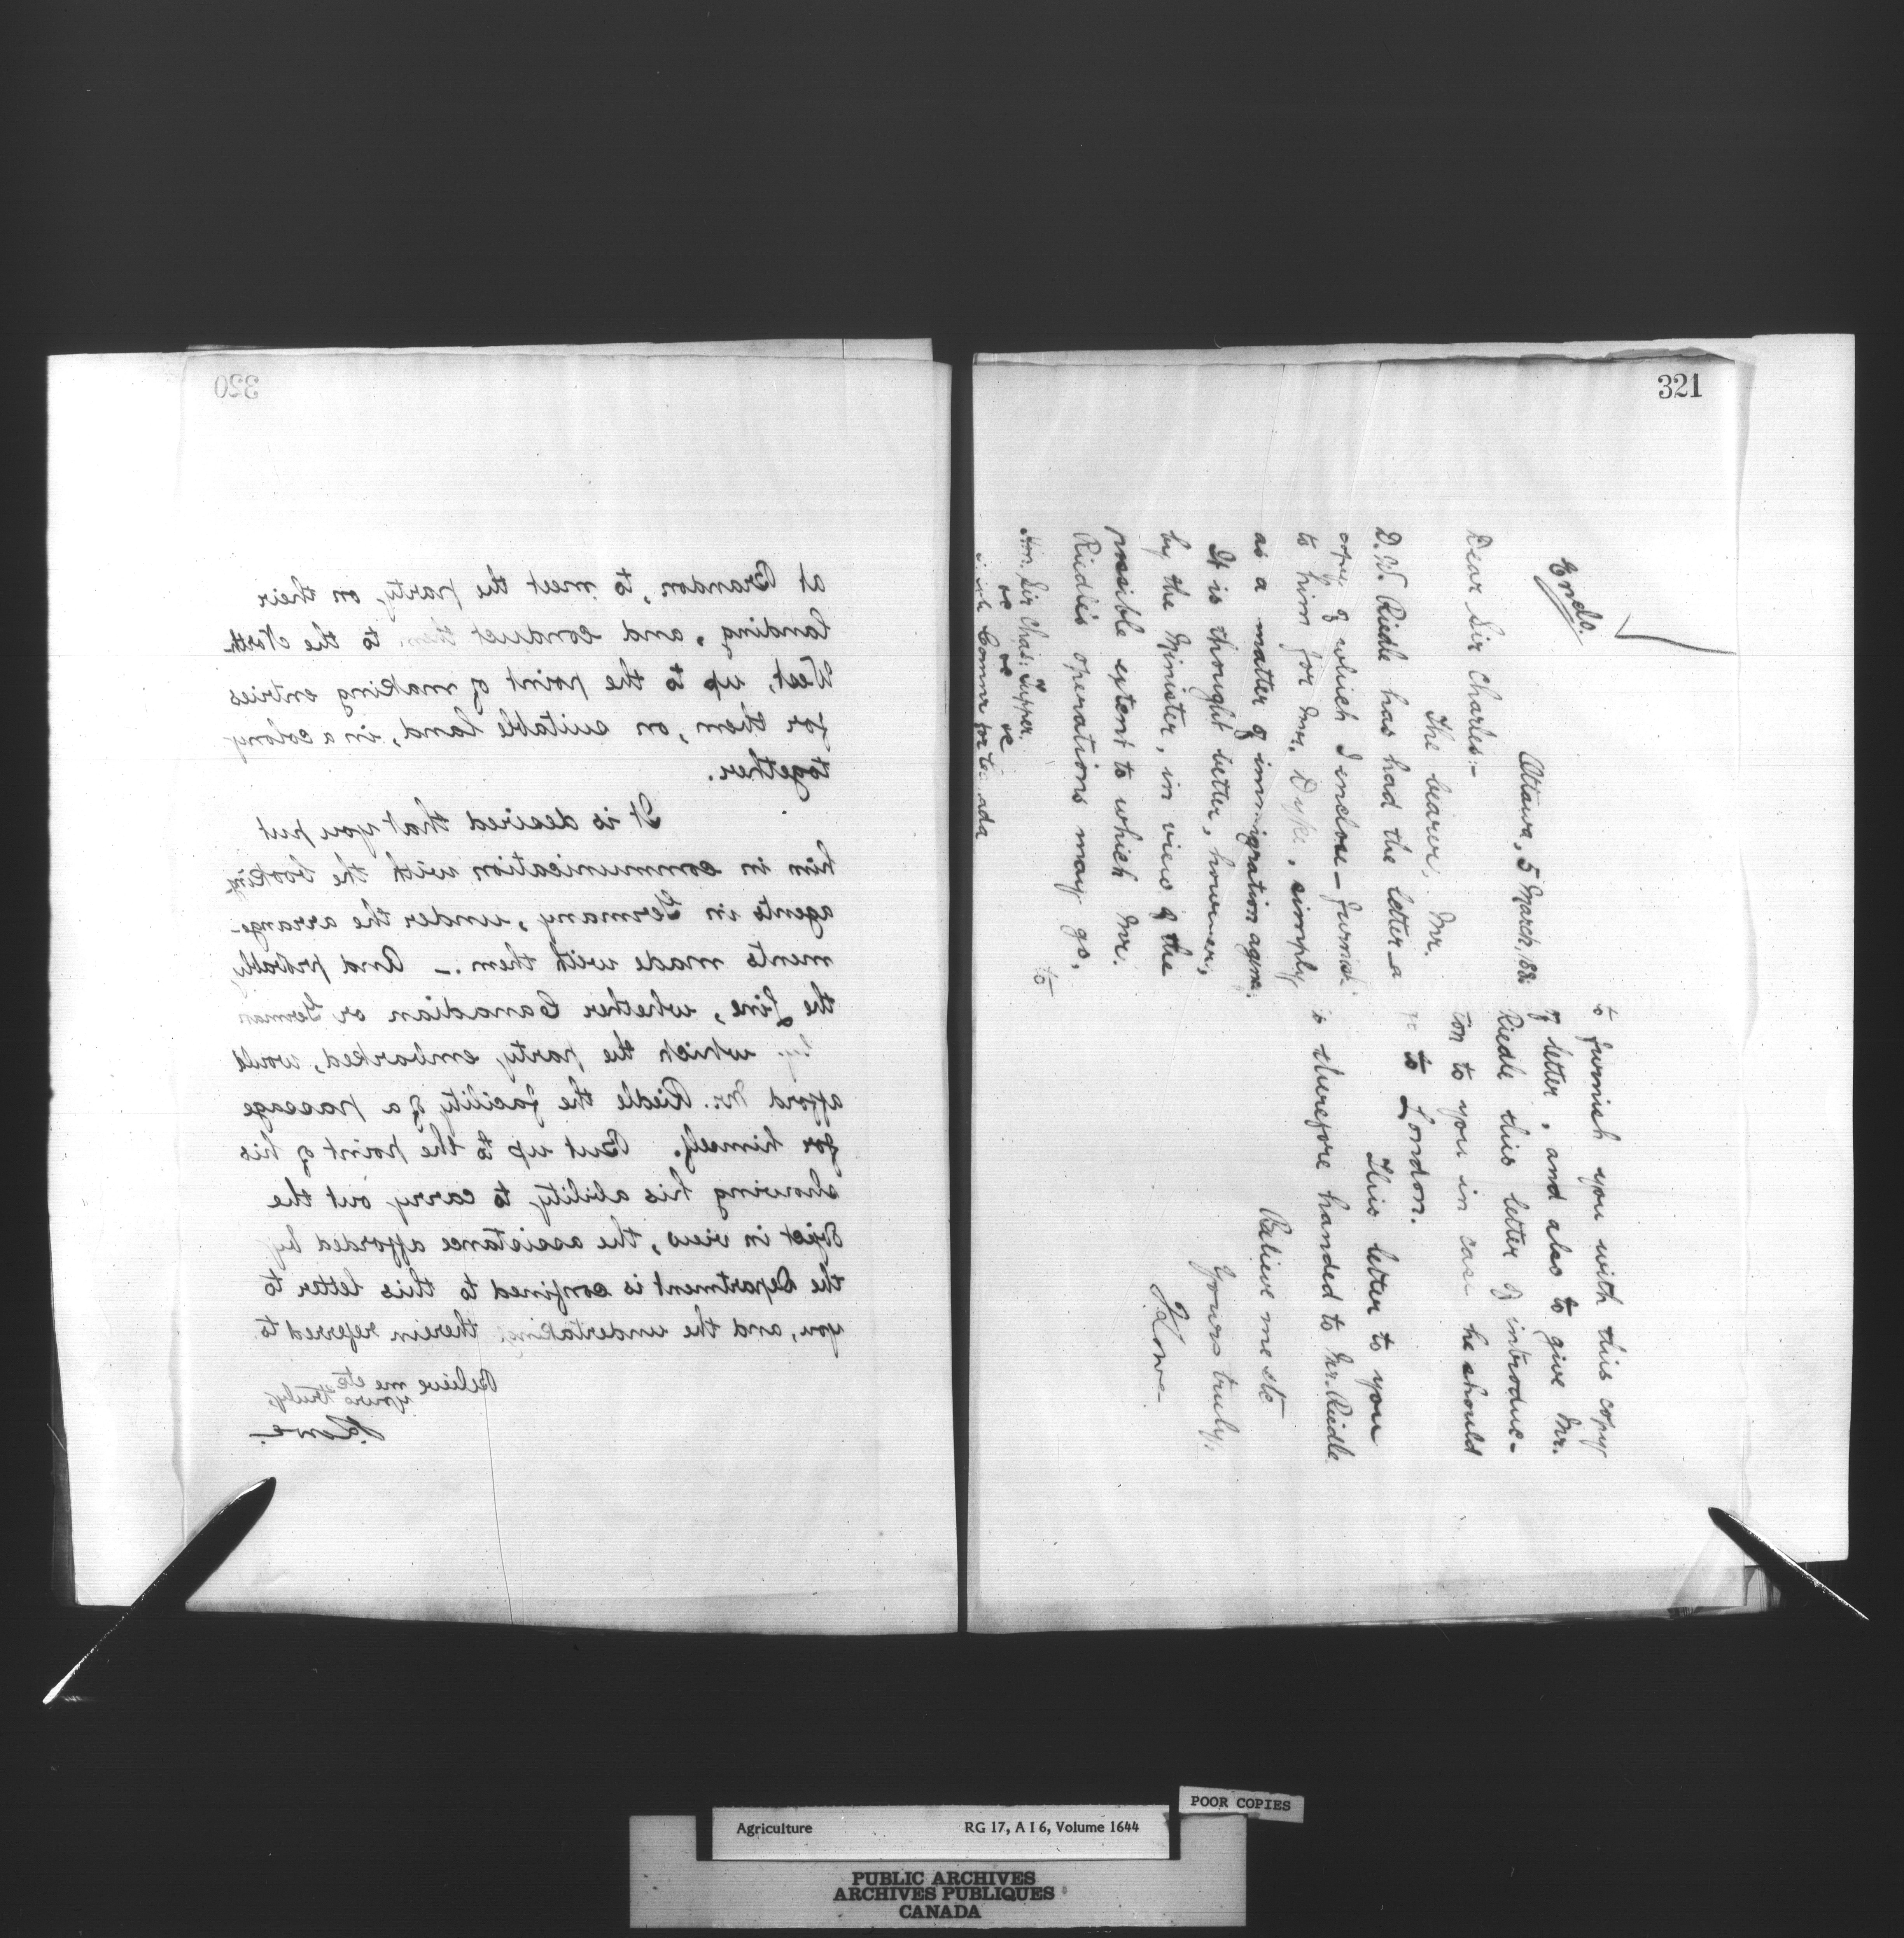 320
at Brandon, to meet the party, on their
landing, and conduct them to the North
West, up to the point of making entries
for them, on suitable land, in a colony
together.
It is desired that you put
him in communication with the booking
agents in Germany, under the arrange-
ments made with them. – And probably
the Line, whether Canadian or German
by which the party embarked, would
afford Mr. Riedle the facility of a passage
for himself. But up to the point of his
showing his ability to carry out the
object in view, the assistance afforded by
the Department is confined to this letter to
you, and the undertaking therein referred to
Believe me etc
yours truly
J. Lowe
321
Enclo.
Ottawa, 5 March, 88
Dear Sir Charles:–
The bearer, Mr.
D. W. Riedle has had the letter – a
copy of which I enclose – furnish
to him for Mr. Dyke, simply
as a matter of immigration agency.
It is thought better, however,
by the Minister, in view of the
possible extent to which Mr.
Riedle's operations may go,
to
Hon. Sir Chas: Tupper.
&c &c &c
High Commr for Canada
to furnish you with this copy
of letter, and also to give Mr.
Riedle this letter of introduc-
tion to you in case he should
go to London.
This letter to you
is therefore handed to Mr. Riedle
Believe me etc
Yours truly.
J. Lowe
POOR COPIES
Agriculture RG 17, A I 6, Volume 1644
PUBLIC ARCHIVES
ARCHIVES PUBLIQUES
CANADA